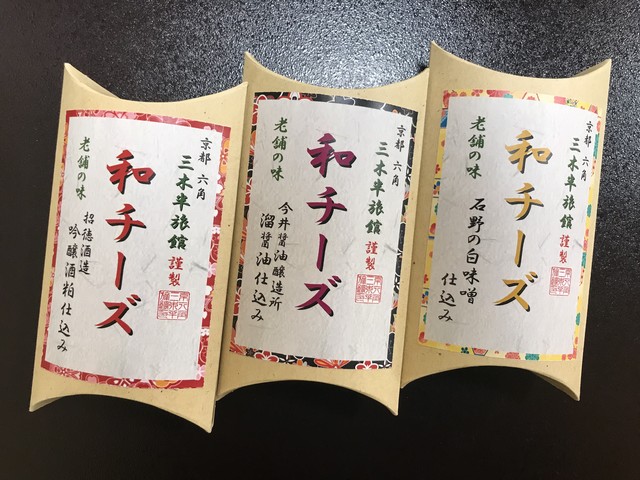 京都 六角
三木半旅館 謹製
和チーズ
老舗の味
招徳酒造
吟醸酒粕仕込み
京都 六角
三木半旅館 謹製
和チーズ
老舗の味
今井醤油醸造所
溜醤油仕込み
京都 六角
三木半旅館 謹製
和チーズ
老舗の味
石野の白味噌
仕込み